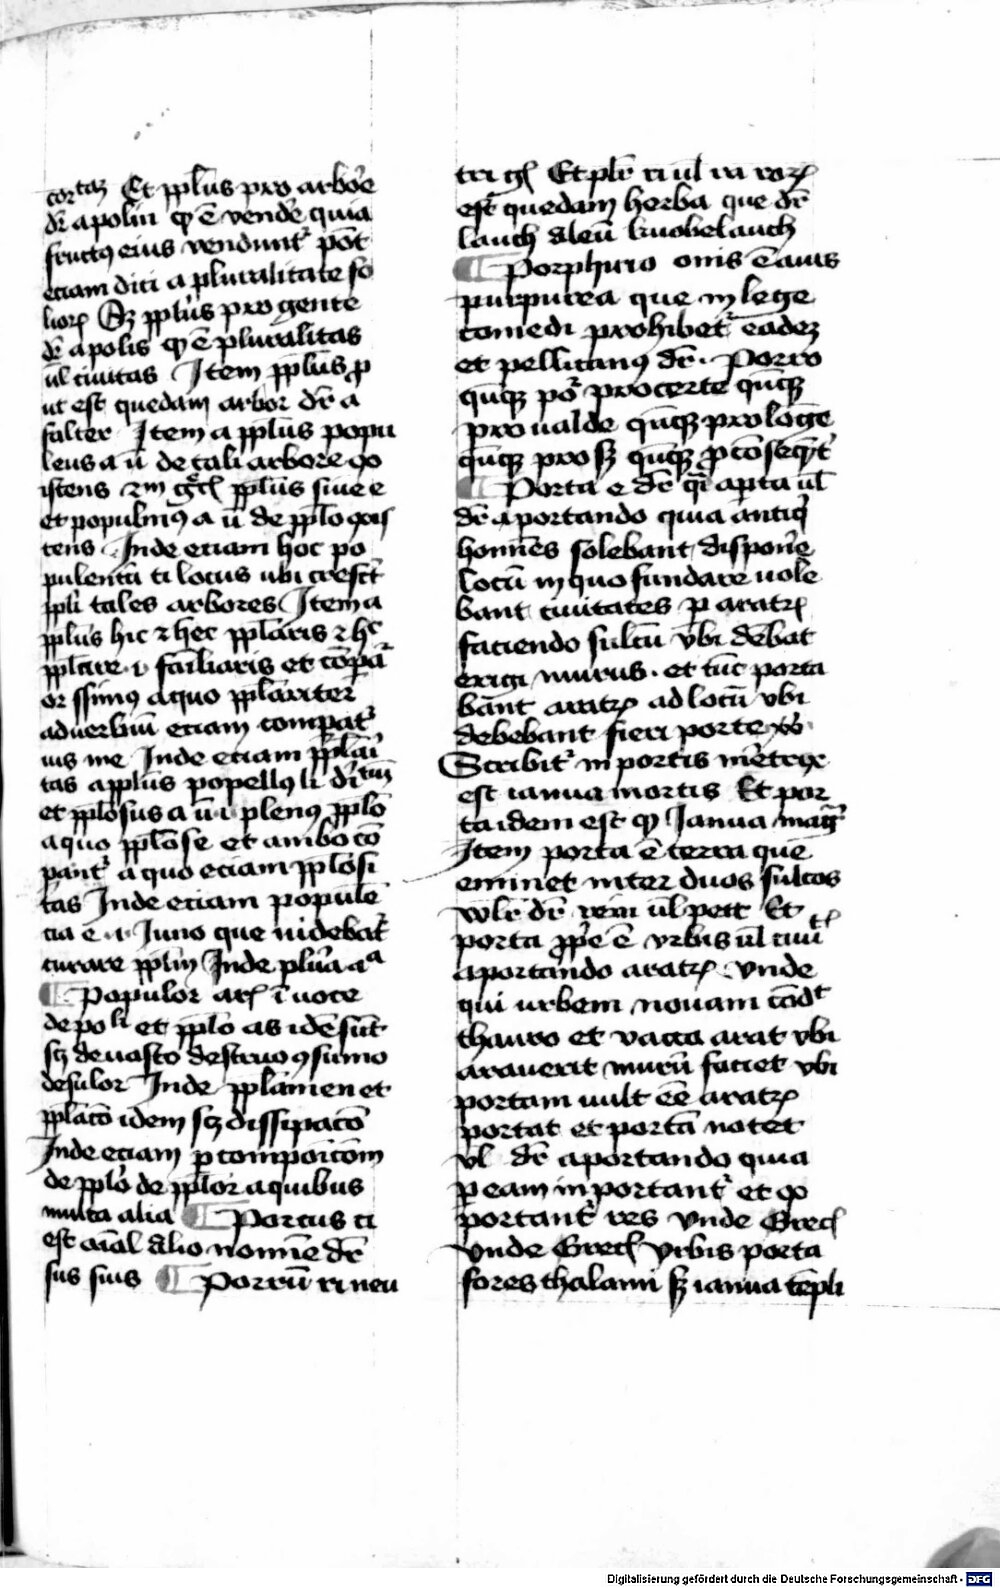 cortaz Et ppl̄us pro arbo̓e
dr̄ a polin qͥ ē vende̓ quia
fructꝰ eius vendunt᷑ pot̄
eciam dici a pluralitate fo
lioꝝ Az ppl̄us pro gente
dr̄ a polis qͥ ē pluralitas
ul̄ ciuitas Item ppl̄us ꝓ
ut est quedam arbor dr̄ a
salter Item a ppl̄us popu
leus a ū de tali arbore
et populniꝰ a ū de pplo
tens Inde eciam hoc po
pulentū ti locus ubi cresct̄
ppl̓i tales arbores Item a
ppl̄us hic ⁊ hec ppl̄aris ⁊ hͨ
ppl̄are .i. fāiliaris et cōpat᷑
or ssimꝰ a quo ppl̄ariter
aduerbiū eciam compat᷑
ius me Inde eciam ppl̄ari
tas a ppl̄us popellꝰ li
et ppl̄osus a ū .i. plenꝰ pplō
a quo ppl̄ose et ambo cō
pant᷑ a quo eciam ppl̄osi
tas Inde eciam populē
cia ē .i. Iuno que uidebat᷑
curare ppl̄m Inde
Populor arꝭ ī uoce
depoli et pplo as idē sūt
scꝫ deuasto destruo ꝯsumo
desulor Inde ppl̄amen et
ppl̄acō idem scꝫ dissipacō
Inde eciam ꝑ compoicōm
de ppl̓o de ppl̄or a quibus
multa alia Porcus ci
est aīal alio nomīe dr̄
sus suis Porrū ri neu
tri gꝭ Et plr̄ ri ul̄ ra roꝝ
est quedam herba que dr̄
lauch aleū knobelauch
Porphirio onis ē auis
purpurea que in lege
comedi prohibet᷑ eadeꝫ
et pellicanꝰ dr̄ . Porro
qn̄qꝫ po᷑ pro certe qn̄qꝫ
pro ualde qn̄qꝫ pro longe
qn̄qꝫ pro sꝫ qn̄qꝫ ꝓ cōseqn̄t᷑
Porta e dr̄ qͣi apta ul̄
dr̄ a portando quia antiqͥ
homines solebant dispone̓
locū in quo fundare uole
bant ciuitates ꝑ aratꝝ
faciendo sulcū vbi debāt
erigi murus . et tūc porta
bant aratꝝ ad locū vbi
debebant fieri porte
Scribit᷑ in portis me̓trix
est ianua mortis Et por
ta idem est qͥ Ianua
Item porta ē terra que
eminet inter duos sulcos
dr̄ ul̄ Et
porta ꝓpͥe ē vrbis ul̄ ciuitͣt
a portando aratꝝ . Vnde
qui urbem nouam cōdͭ
thauro et vacca arat vbi
arauerit murū faciet vbi
portam uult ēe aratꝝ
portat et portā notet
vl̄ dr̄ a portando quia
ꝑ eam inportant᷑ et
portant᷑ res Vnde Grecꝭ
Vnde Grecꝭ Vrbis porta
fores thalami sꝫ ianua tēpli
Digitalisierung gefördert durch die Deutsche Forschungsgemeinschaft - DFG